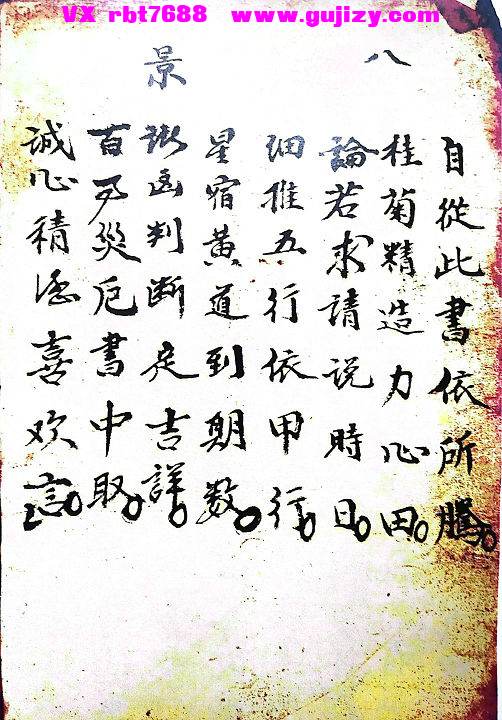 VX rbt7688 www.gujizy.com
八
景
自從此書依所騰
桂菊精造力心田
論若求請説時日
細推五行依甲行
星宿黄道到期数
凶判断定吉詳
百死災厄書中取
誠心積德喜欢言